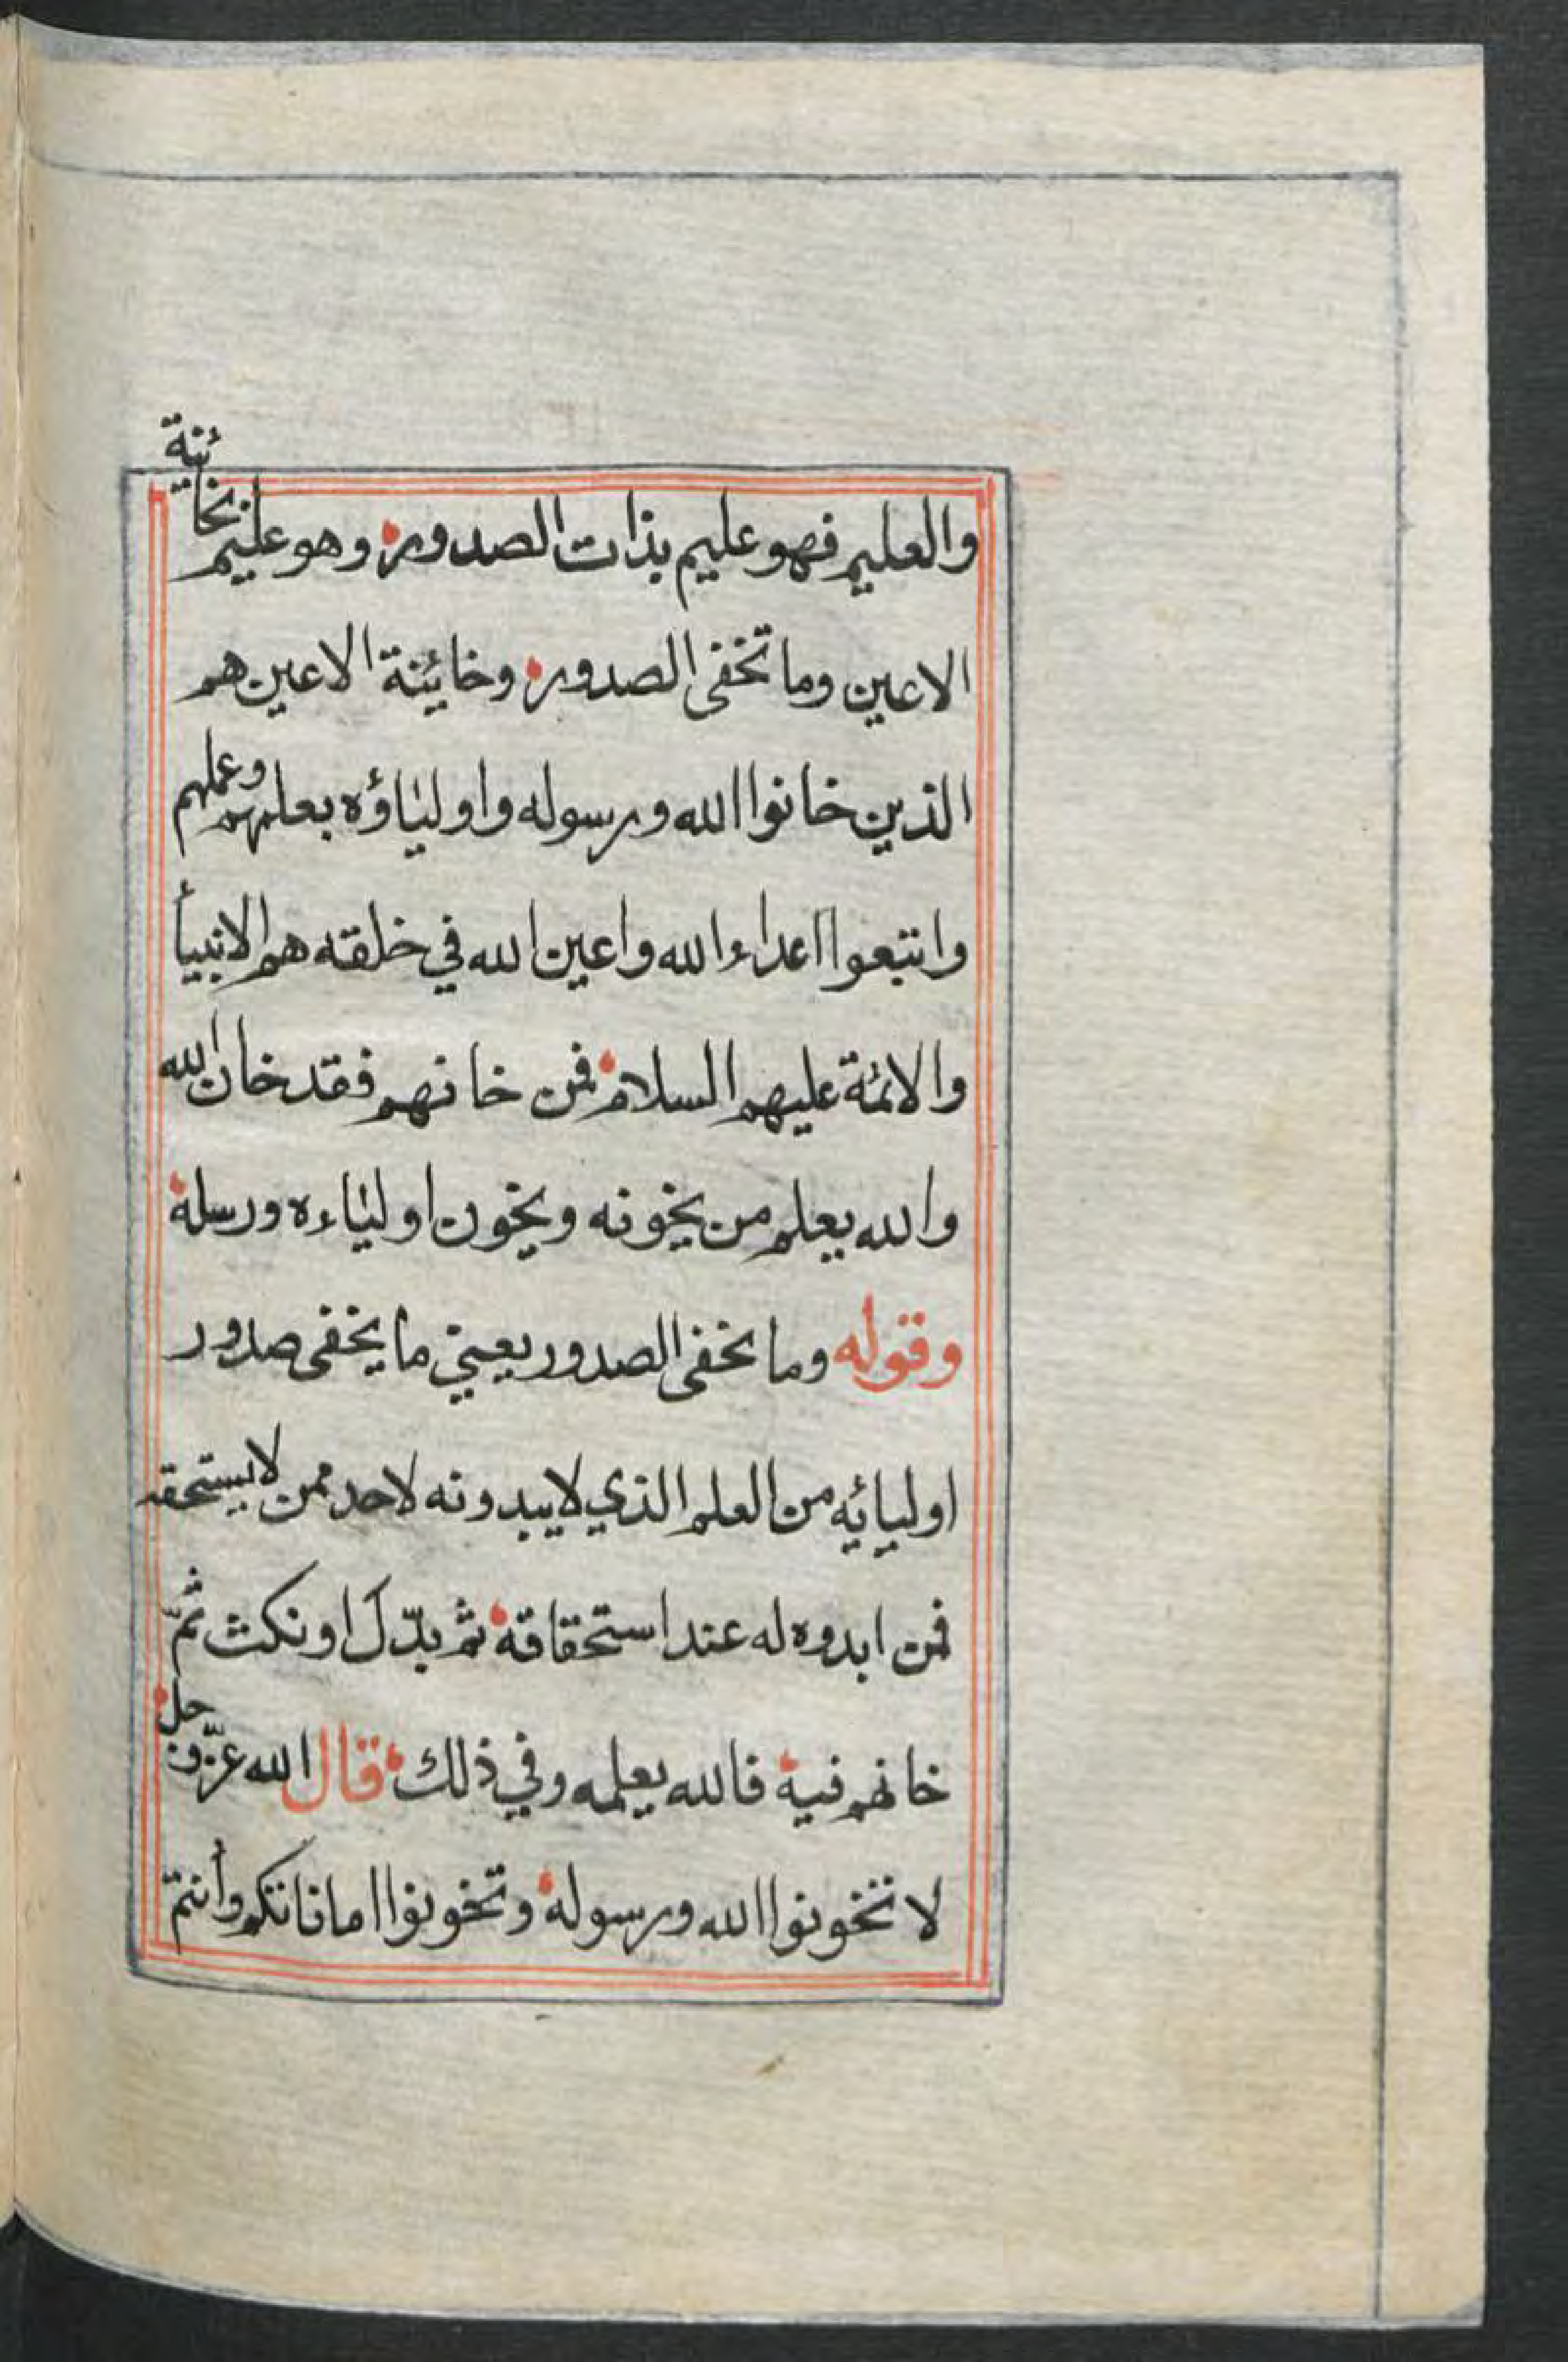 والعليم فهو عليم بذات الصدور وهو عليم بخائنة
الاعين وما تخفى الصدور وخائنة الاعين هم
الذين خانوا الله ورسوله واولياؤه بعلمهم وعملهم
واتبعوا اعداء الله واعين الله في خلقته هم الانبيأ
والائمة عليهم السلام فمن خانهم فقد خان الله
والله يعلم من يخونه ويخون اولياءه ورسله
وقوله وما تخفى الصدور يعني ما يخفى صدور
اوليائه من العلم الذي لا يبدونه لاحد ممن لا يستحقه
فمن ابدوه له عند استحقاقه ثم بدّل او نكث ثمّ
خانهم فيه فالله يعلمه وفي ذلك قال الله عزّ وجل
لا تخونوا الله ورسوله وتخونوا اماناتكم وأنتم